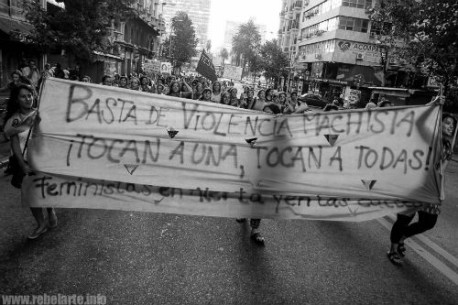 BASTA DE VIOLENCIA MACHISTA
¡TOCAN A UNA, TOCAN A TODAS!
Feministas en alerta y en las calles
www.rebelarte.info